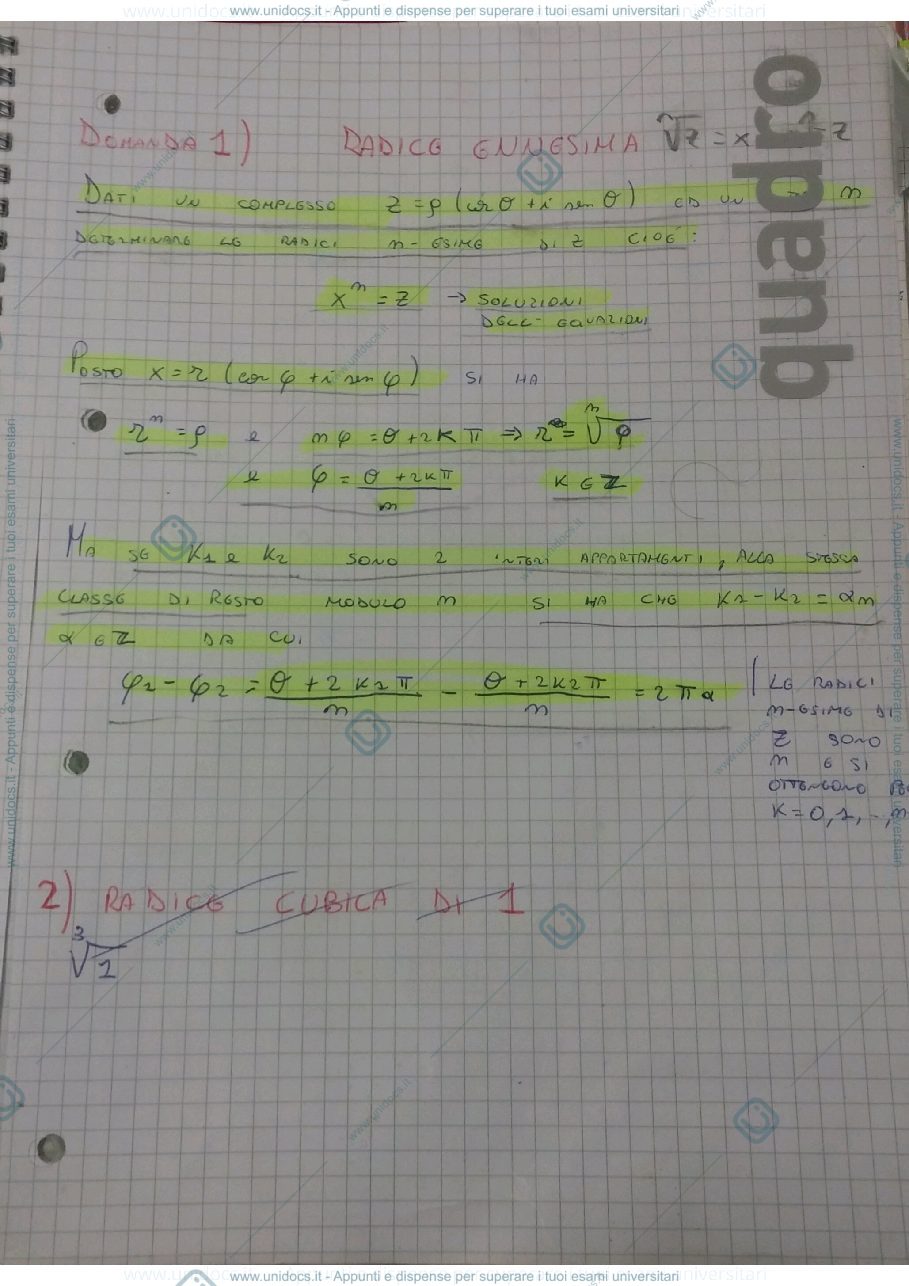 www.unidocs.it - Appunti e dispense per superare i tuoi esami universitari
quadro
DOMANDA 1) RADICE ENNESIMA ⁿ√z = x z
DATI UN COMPLESSO z = ρ (cos θ + i sen θ) ED UN n
DETERMINARE LE RADICI n-ESIME DI z CIOÈ:
xⁿ = z → SOLUZIONI
DELL' EQUAZIONI
POSTO x = r (cos φ + i sen φ) SI HA
rⁿ = ρ e nφ = θ + 2kπ ⇒ r = ⁿ√ρ
e φ = (θ + 2kπ)/n k ∈ Z
MA SE K1 e K2 SONO 2 INTERI APPARTAMENTI, ALLA STESSA
CLASSE DI RESTO MODULO n SI HA CHE K1 - K2 = αn
α ∈ Z DA CUI
φ1 - φ2 = (θ + 2K1π)/n - (θ + 2K2π)/n = 2πα
LE RADICI
n-ESIME DI
Z SONO
n E SI
OTTENGONO
K = 0, 1, .., n
2) RADICE CUBICA DI 1
³√1
www.unidocs.it - Appunti e dispense per superare i tuoi esami universitari